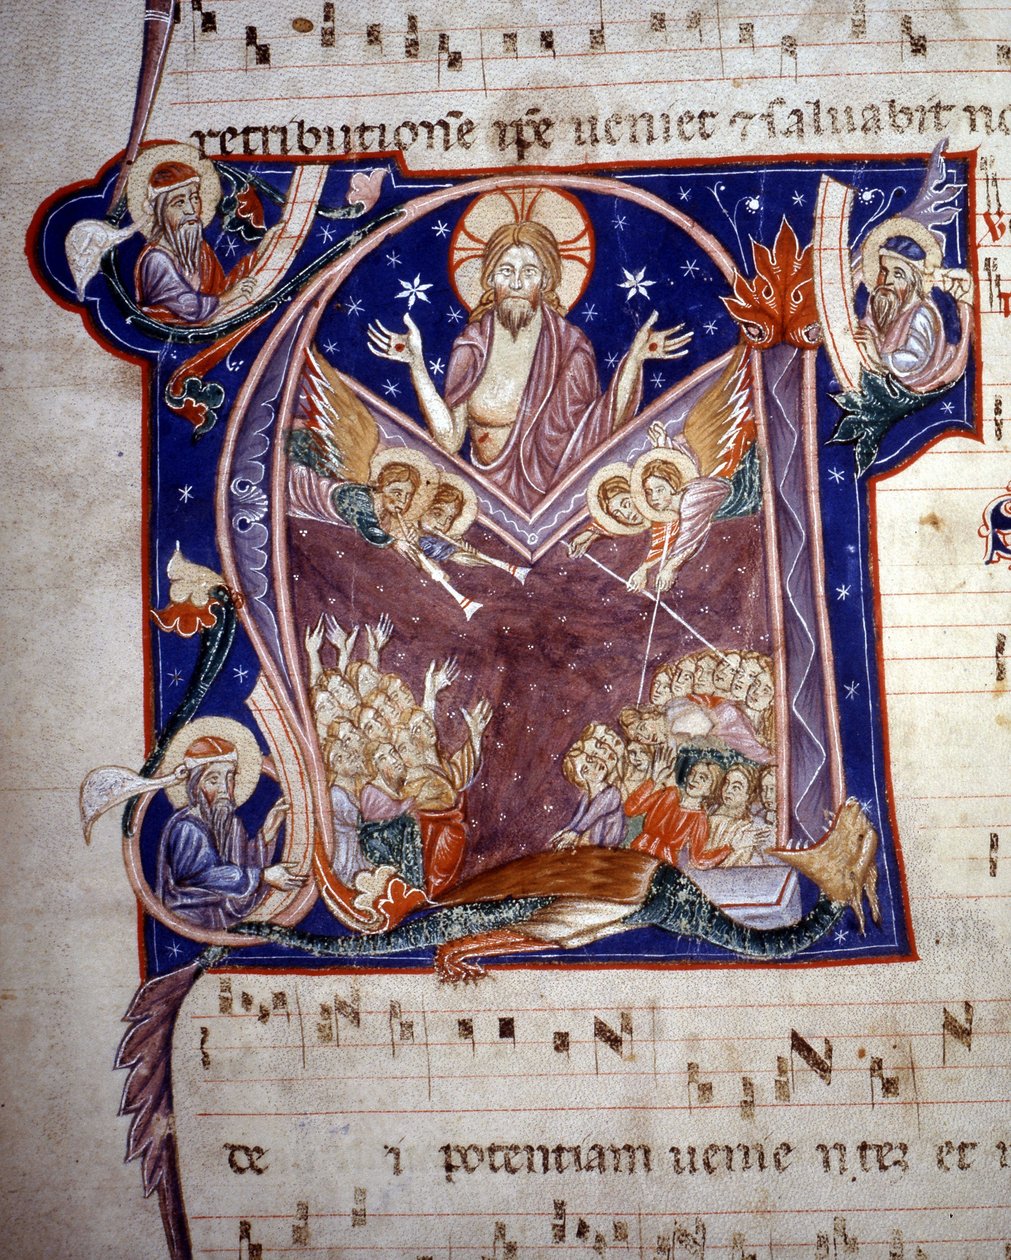 retributionē ip̄e ueniet ⁊ saluabit no
de i potentiam ueni entez et